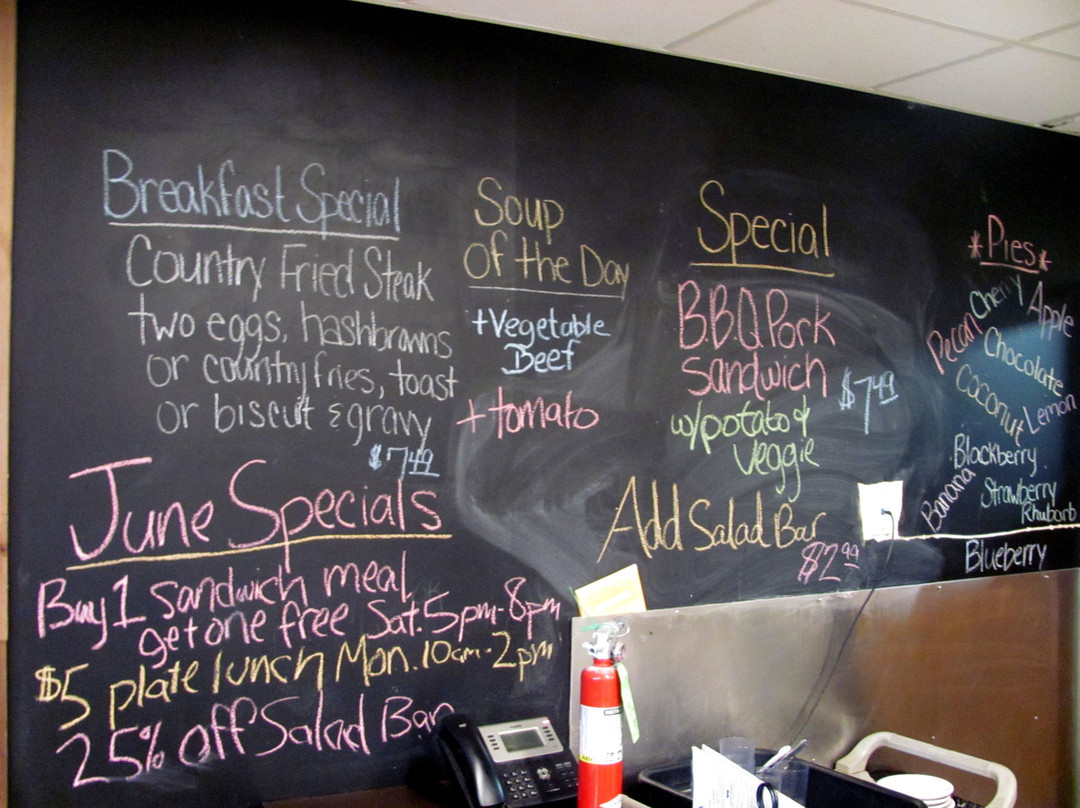 Breakfast Special
Country Fried Steak
two eggs, hashbrowns
or country fries, toast
or biscuit & gravy
$7.49
June Specials
Buy 1 sandwich meal
get one free Sat. 5pm-8pm
$5 plate lunch Mon. 10am-2pm
25% off Salad Bar
Soup
of the Day
+Vegetable
Beef
+tomato
Special
B.B.Q Pork
Sandwich
$7.49
w/potato &
Veggie
Add Salad Bar
$2.99
*Pies*
Cherry
Apple
Pecan
Chocolate
Coconut
Lemon
Blackberry
Banana
Strawberry
Rhubarb
Blueberry